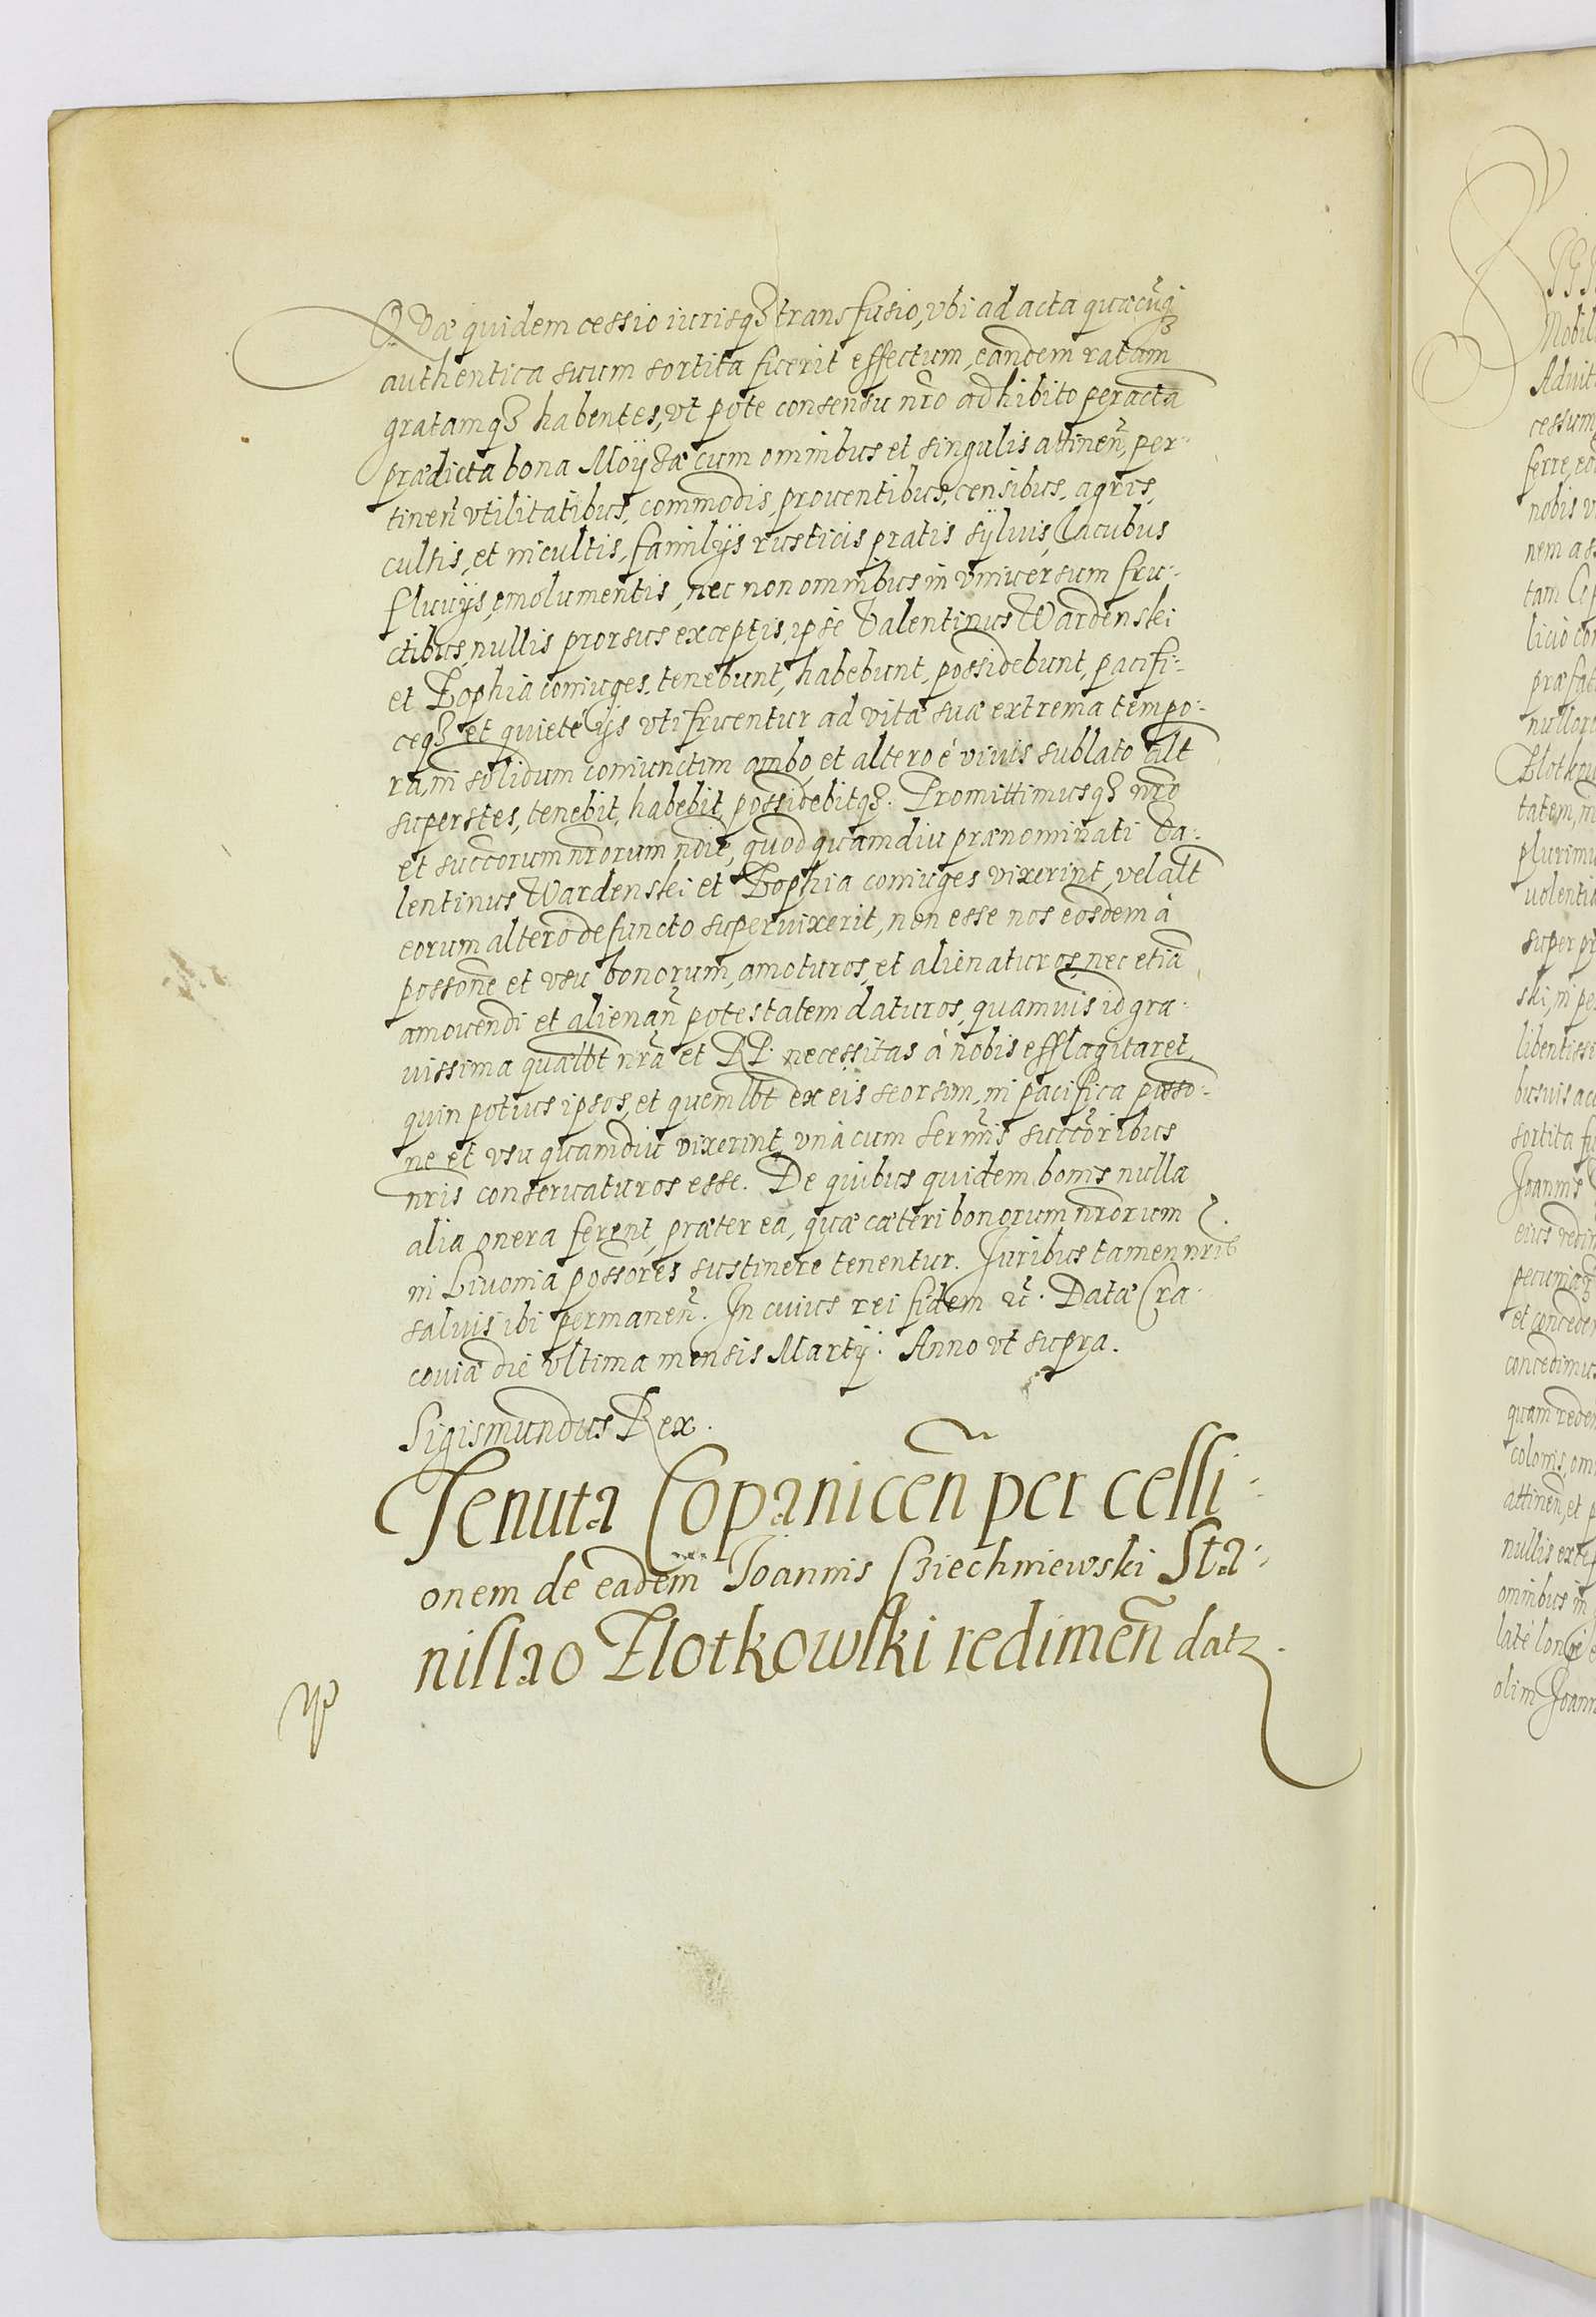 QVae quidem cessio iurisq3 transfusio, vbi ad acta quaecũq3
authentica suum sortita fuerit effectum, eandem ratam
gratamq3 habentes, vt pote consensu nr̃o adhibito peracta
praedicta bona Moyzae cum omnibus et singulis attineñ, per-
tineñ vtilitatibus, commodis, prouentibus, censibus, agris,
cultis, et incultis, familijs rusticis pratis syluis, Lacubus
fluuijs, emolumentis, nec non omnibus in vniuersum fru-
ctibus, nullis prorsus exceptis, ipse Valentinus Wardenski
et Zophia coniuges, tenebunt, habebunt, possidebunt, pacifi-
ceq3 et quiete ijs vti fruentur ad vitae suae extrema tempo-
ra, in solidum coniunctim ambo, et altero è viuis sublato alt
superstes, tenebit, habebit, possidebitq3. Promittimusq3 nr̃o
et succorum nr̃orum noĩe, quod quamdiu praenominati Va-
lentinus Wardenski et Zophia coniuges vixerint, vel alt
eorum altero defuncto superuixerit, non esse nos eosdem à
possoñe et vsu bonorum, amoturos, et alienaturos, nec etiã
amouendi et alienañ potestatem daturos, quamuis id gra-
uissima quaelbt nr̃a et RP. necessitas à nobis efflagitaret,
quin potius ipsos, et quemlbt ex eis seorsim, in pacifica posso-
ne et vsu quamdiu vixerint, vnà cum Serm̃is succoribus
nr̃is conseruaturos esse. De quibus quidem bonis nulla
alia onera ferent, praeter ea, quae caeteri bonorum nr̃orum
in Liuonia possores sustinere tenentur. Juribus tamen nr̃is
saluis ibi permaneñ. In cuius rei fidem &c̃. Datae Cra-
couiae die vltima mensis Martij. Anno vt supra.
Sigismundus Rex.
Tenuta Copaniceñ per cessi-
onem de eadem Joannis Cziechniewski Sta-
nislao Zlotkowski redimeñ dat